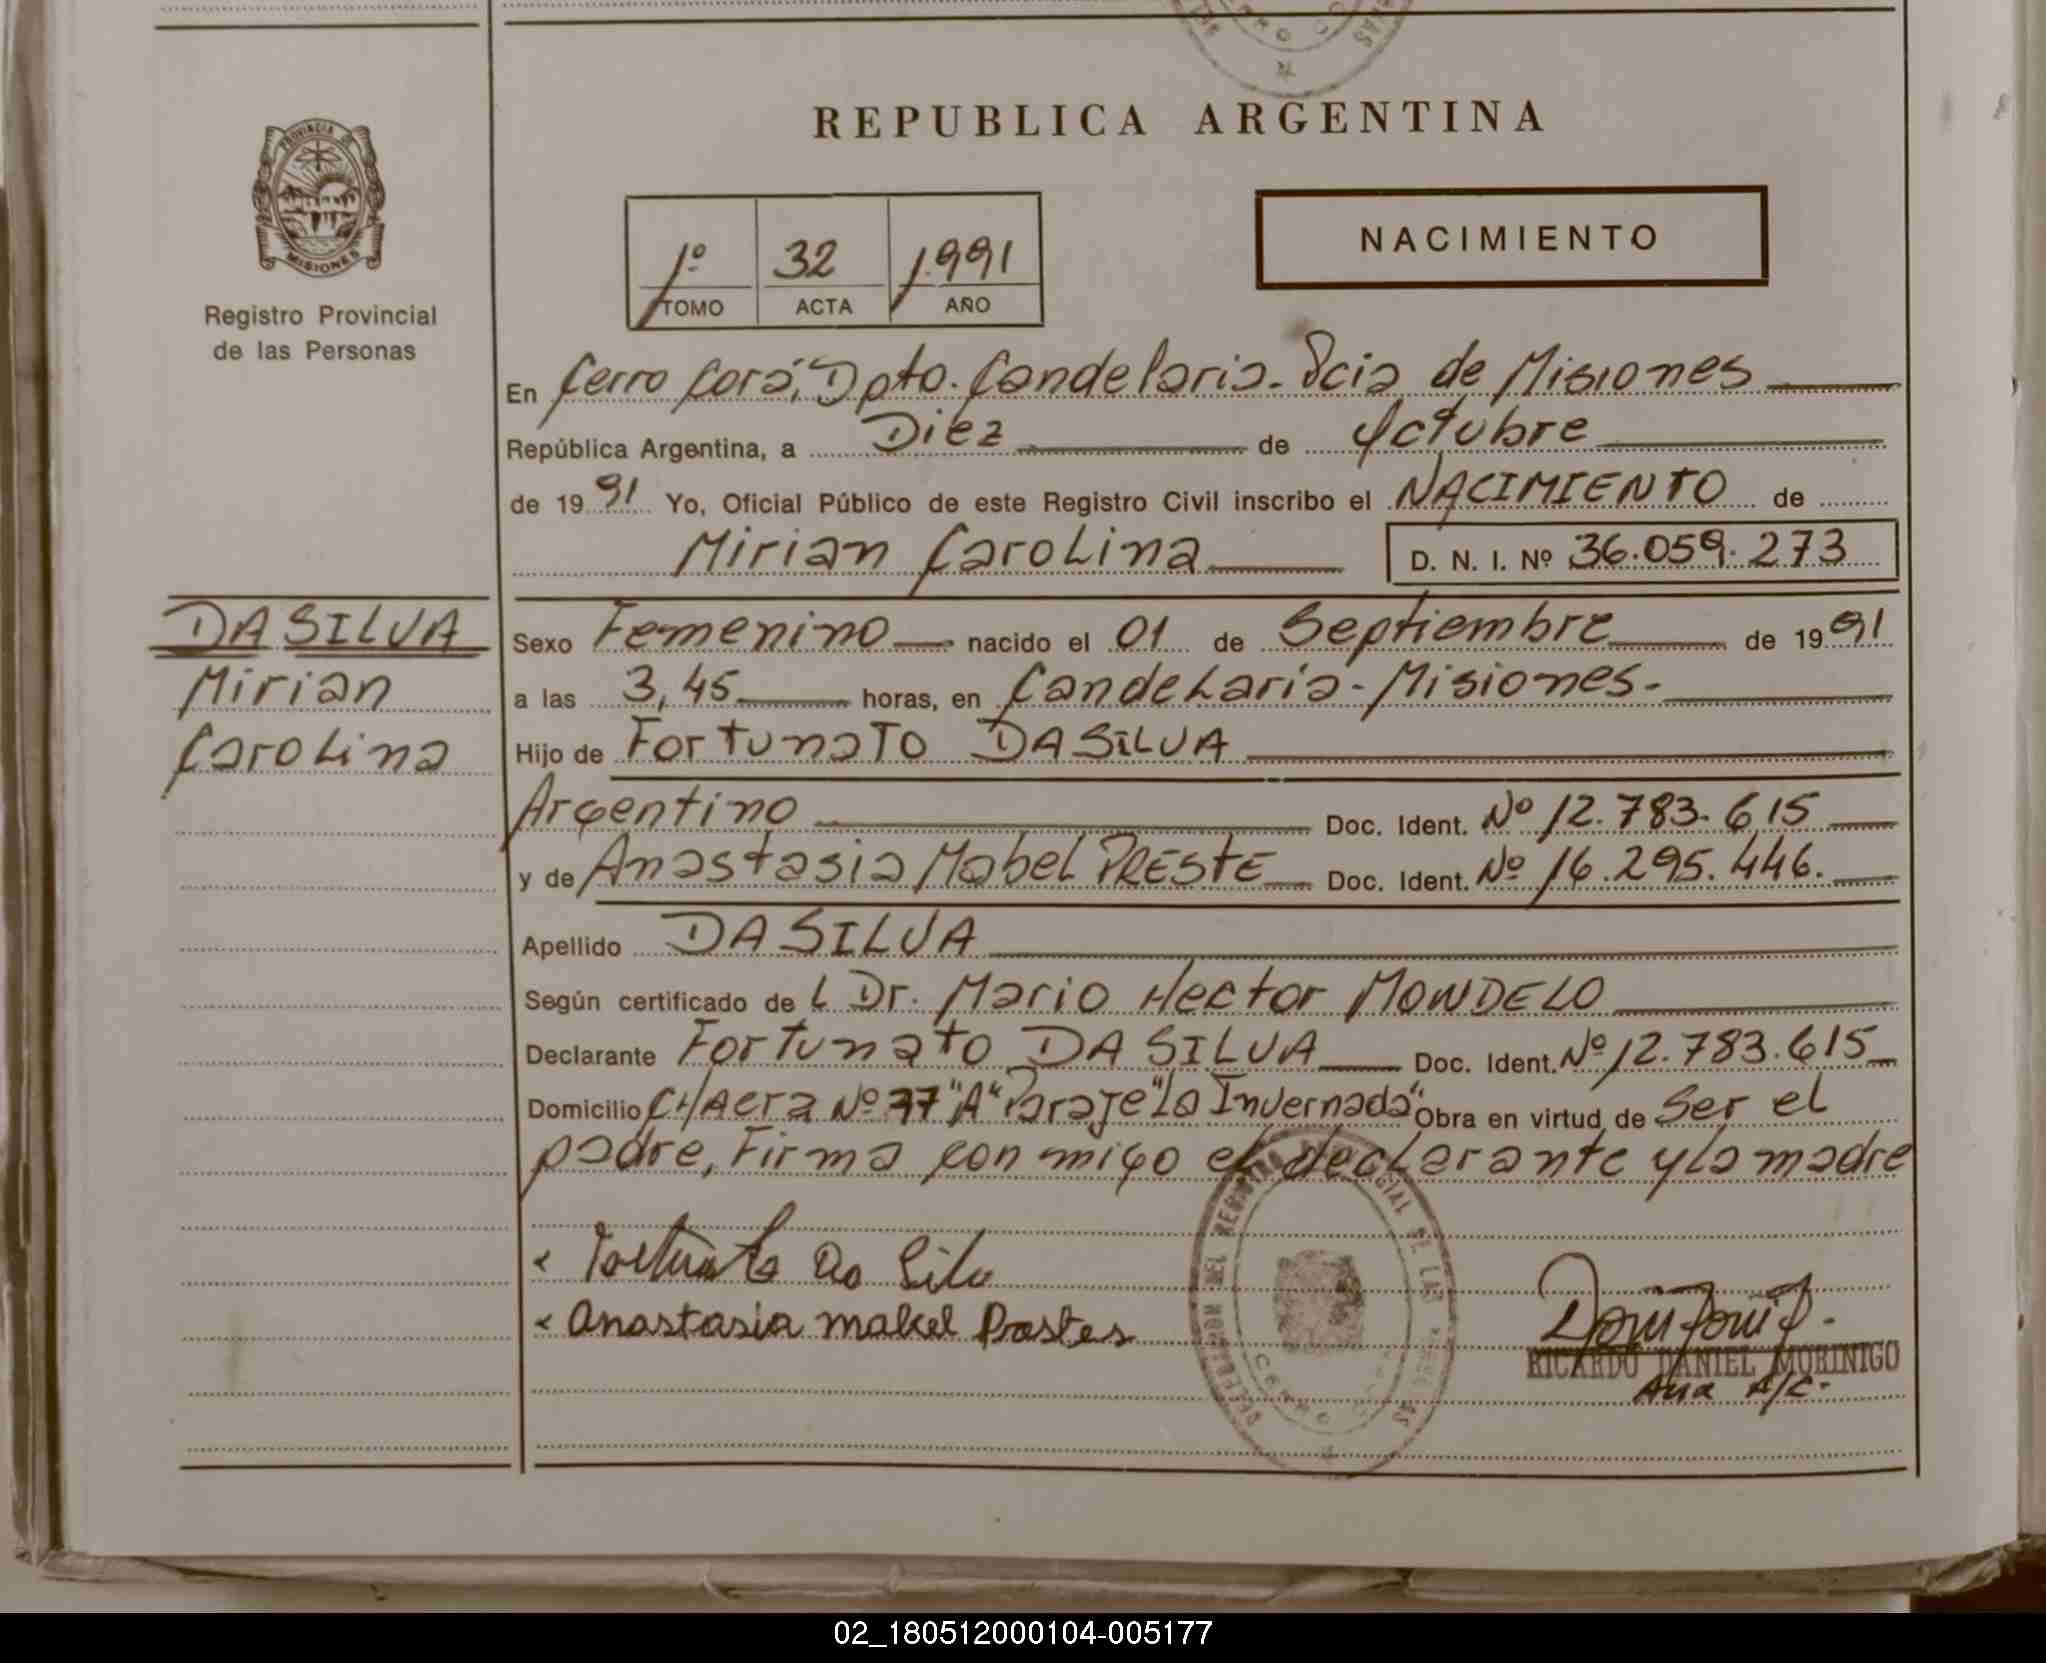 REPUBLICA ARGENTINA
PROVINCIA DE
MISIONES
Registro Provincial
de las Personas
1º 32 1.991
TOMO ACTA AÑO
NACIMIENTO
En Cerro Corá, Dpto. Candelaria. Pcia de Misiones
República Argentina, a Diez de Octubre
de 1991 Yo, Oficial Público de este Registro Civil inscribo el NACIMIENTO de
Mirian Carolina D. N. I. Nº 36.059.273
DA SILVA
Mirian
Carolina
Sexo Femenino nacido el 01 de Septiembre de 1991
a las 3,45 horas, en Candelaria - Misiones.
Hijo de Fortunato DA SILVA
Argentino Doc. Ident. Nº 12.783.615
y de Anastasia Mabel PRESTE Doc. Ident. Nº 16.295.446.
Apellido DA SILVA
Según certificado de L Dr. Mario Hector MONDELO
Declarante Fortunato DA SILVA Doc. Ident. Nº 12.783.615
Domicilio CHAcra Nº 77 "A" Paraje "La Invernada" Obra en virtud de Ser el
padre, Firma con migo el declarante y la madre
Fortunato Da Silva
Anastasia Mabel Prestes
RICARDO DANIEL MORINIGO
Aux A/C.
02_180512000104-005177